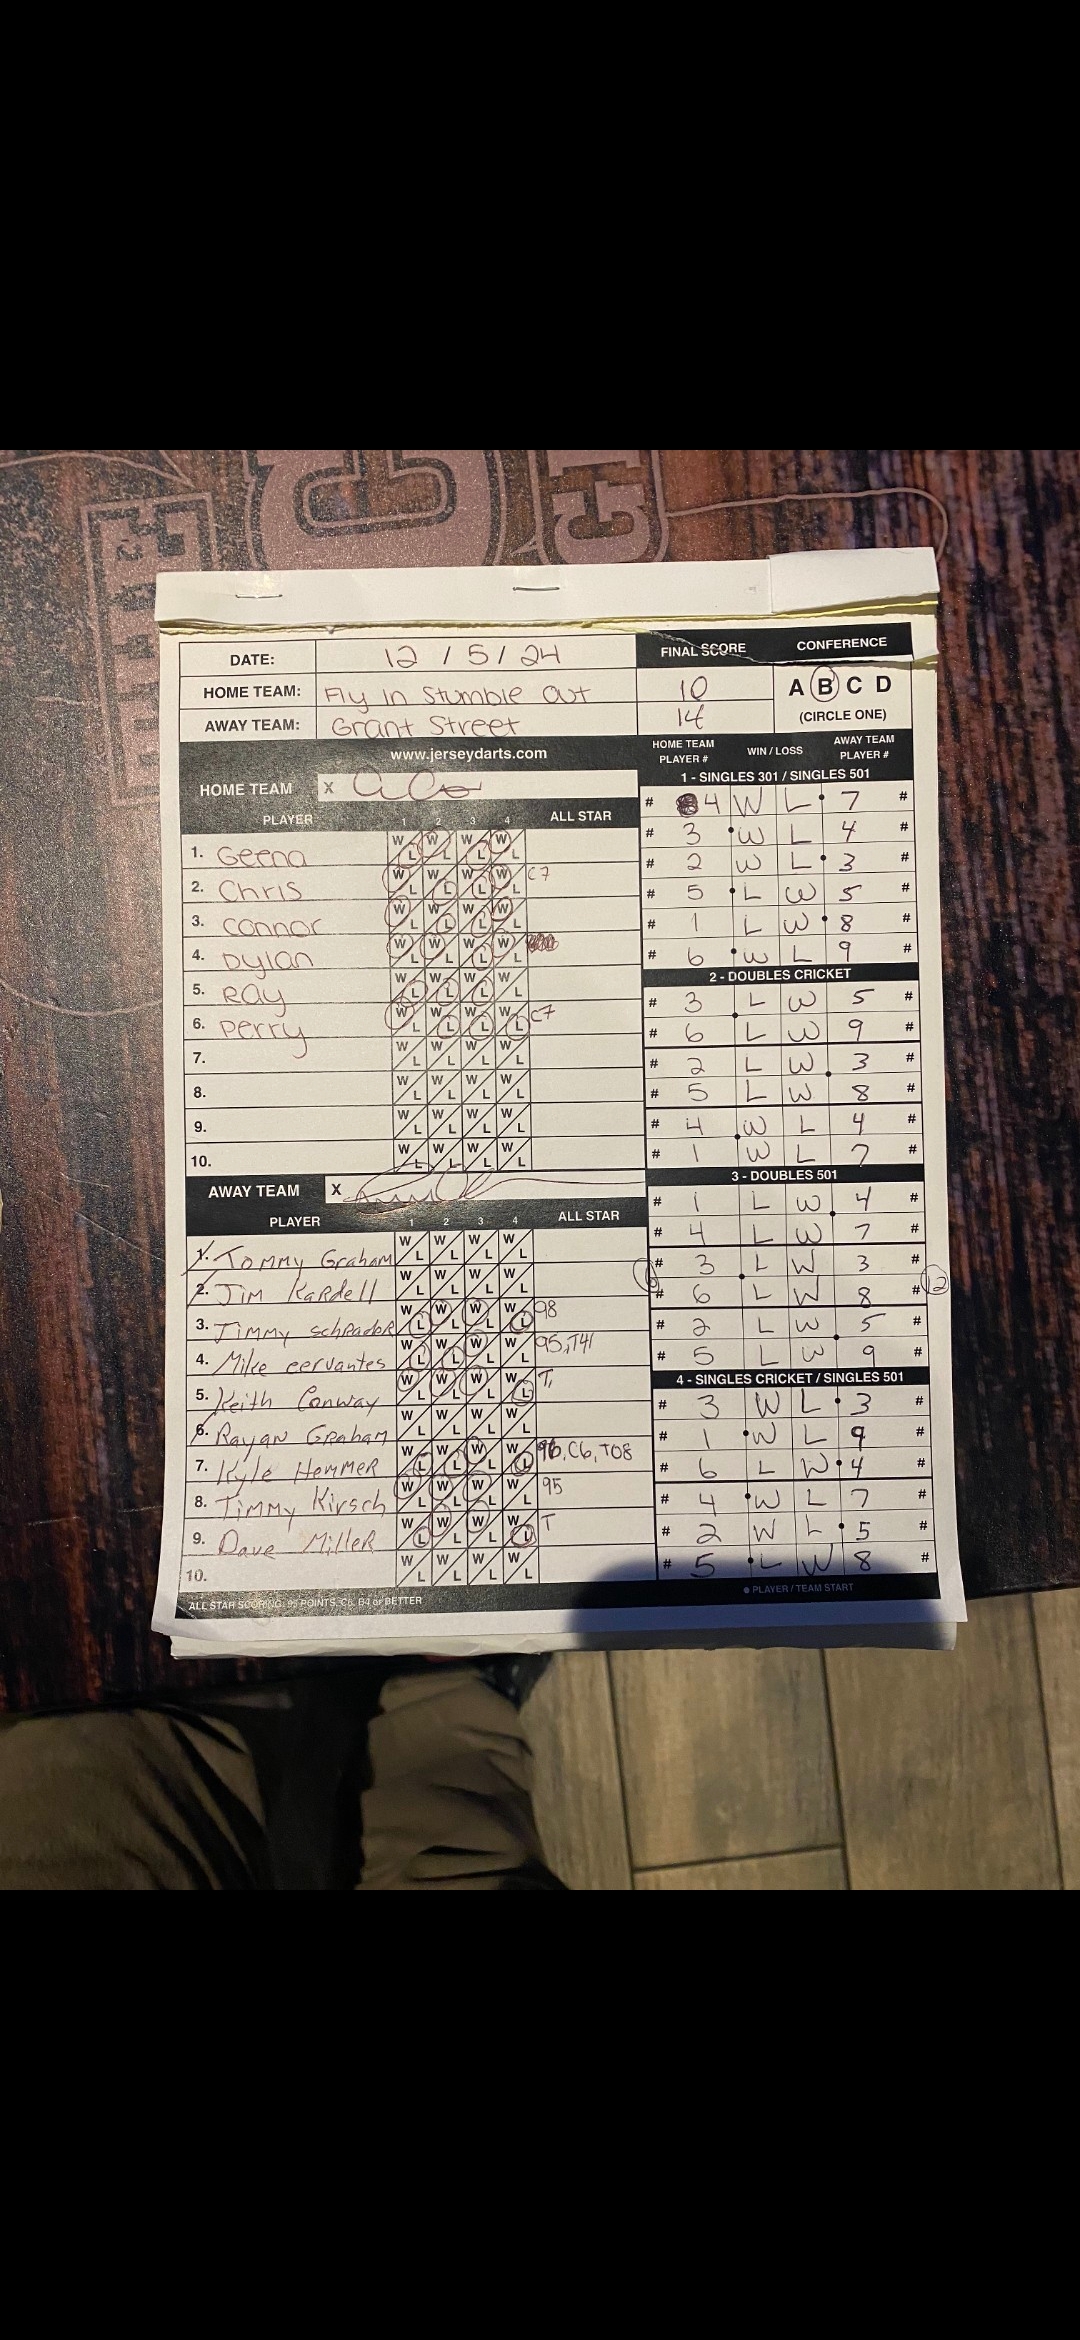 DATE: 12 / 5 / 24
HOME TEAM: Fly In Stumble Out
AWAY TEAM: Grant Street
FINAL SCORE
10
14
CONFERENCE
A B C D
(CIRCLE ONE)
www.jerseydarts.com
HOME TEAM X
PLAYER 1 2 3 4 ALL STAR
1. Geena W L W L W L W L
2. Chris W L W L W L W L C7
3. Connor W L W L W L W L
4. Dylan W L W L W L W L
5. Ray W L W L W L W L
6. Perry W L W L W L W L C7
7. W L W L W L W L
8. W L W L W L W L
9. W L W L W L W L
10. W L W L W L W L
AWAY TEAM X
PLAYER 1 2 3 4 ALL STAR
1. Tommy Graham W L W L W L W L
2. Jim Kardell W L W L W L W L
3. Jimmy Schrader W L W L W L W L 98
4. Mike cervantes W L W L W L W L 95, T41
5. Keith Conway W L W L W L W L T,
6. Rayan Graham W L W L W L W L
7. Kyle Hemmer W L W L W L W L 96, C6, T08
8. Timmy Kirsch W L W L W L W L 95
9. Dave Miller W L W L W L W L T
10. W L W L W L W L
ALL STAR SCORING: 95 POINTS, C6, B4 or BETTER
HOME TEAM PLAYER # WIN / LOSS AWAY TEAM PLAYER #
1 - SINGLES 301 / SINGLES 501
# 4 W L 7 #
# 3 W L 4 #
# 2 W L 3 #
# 5 L W 5 #
# 1 L W 8 #
# 6 W L 9 #
2 - DOUBLES CRICKET
# 3 L W 5 #
# 6 L W 9 #
# 2 L W 3 #
# 5 L W 8 #
# 4 W L 4 #
# 1 W L 7 #
3 - DOUBLES 501
# 1 L W 4 #
# 4 L W 7 #
# 3 L W 3 #
# 6 L W 8 # 12
# 2 L W 5 #
# 5 L W 9 #
4 - SINGLES CRICKET / SINGLES 501
# 3 W L 3 #
# 1 W L 9 #
# 6 L W 4 #
# 4 W L 7 #
# 2 W L 5 #
# 5 L W 8 #
● PLAYER / TEAM START